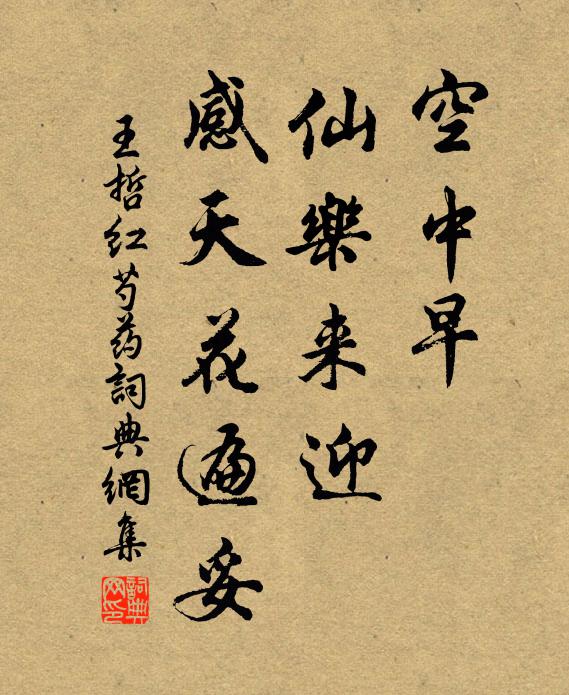 空中早
仙樂来迎
感天花遍妥
王哲红芍药詞典網集
詞典网印